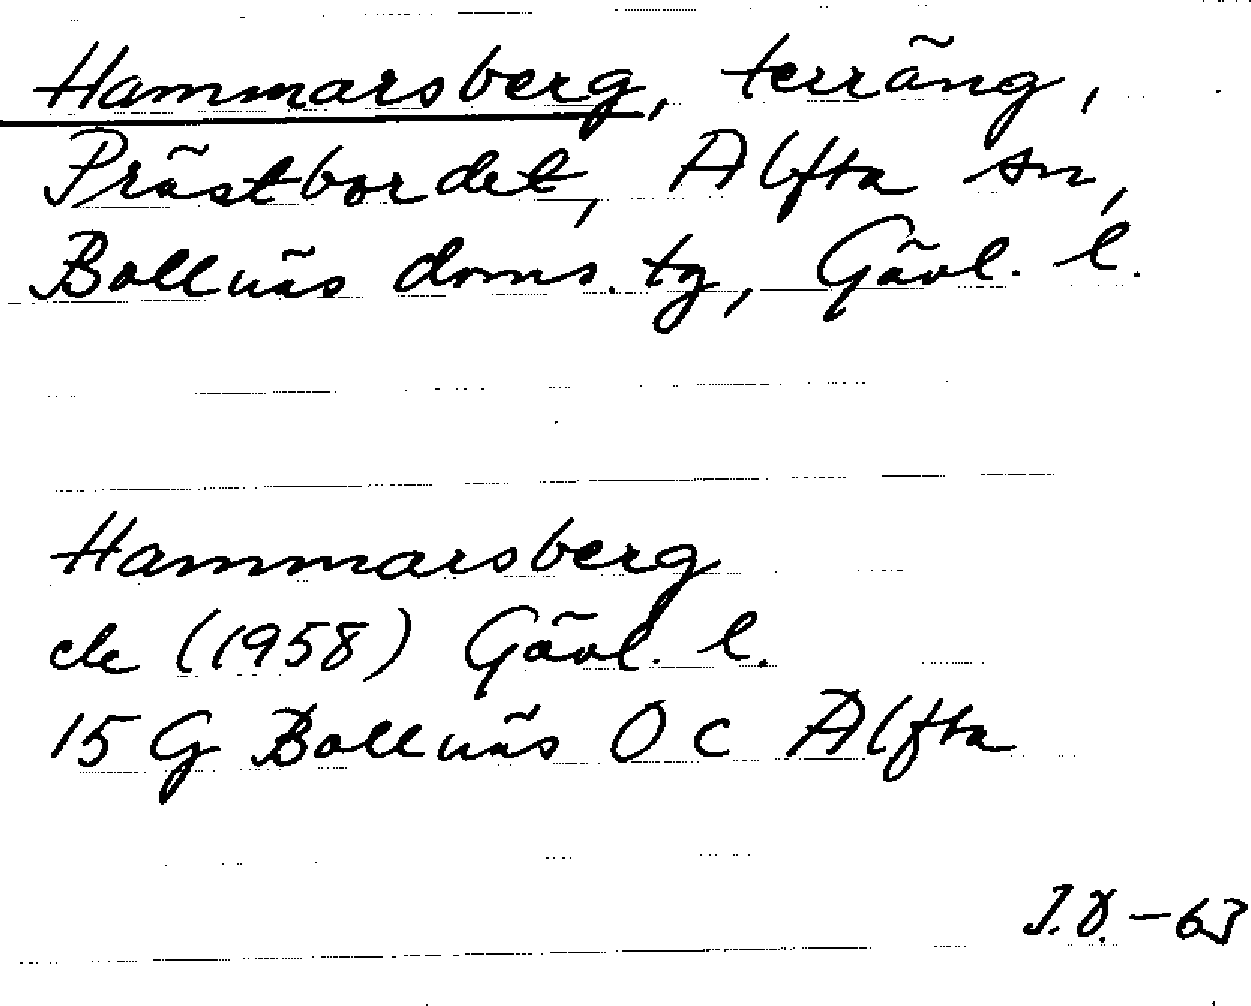 Hammarsberg, terräng,
Prästbordet, Alfta sn,
Bollnäs doms. tg, Gävl. l.
Hammarsberg
ek (1958) Gävl. l.
15 G Bollnäs 0 c Alfta
-63